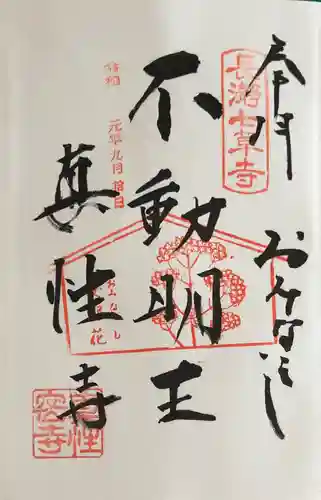 奉拝
おみなえし
長瀞七草寺
不動明王
令和元年九月拾日
おみなえし
花
真性寺
真性
密寺